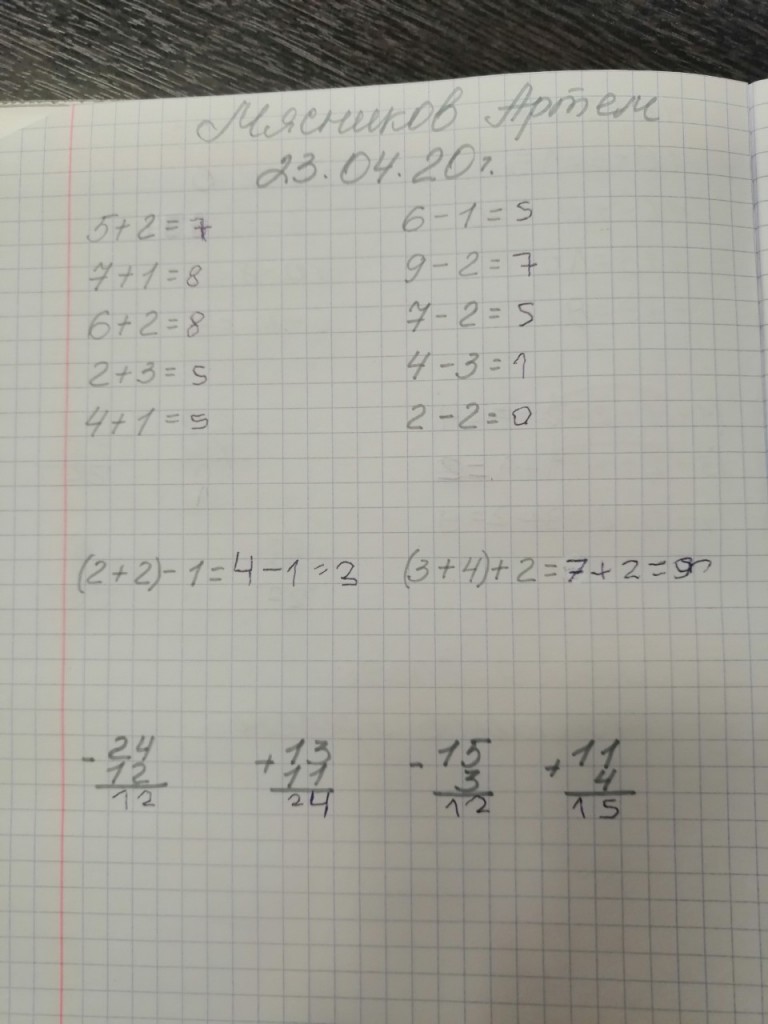 Мясников Артем
23.04.20г.
5+2=7 6-1=5
7+1=8 9-2=7
6+2=8 7-2=5
2+3=5 4-3=1
4+1=5 2-2=0
(2+2)-1=4-1=3 (3+4)+2=7+2=9
-24 +13 -15 +11
12 11 3 4
12 24 12 15